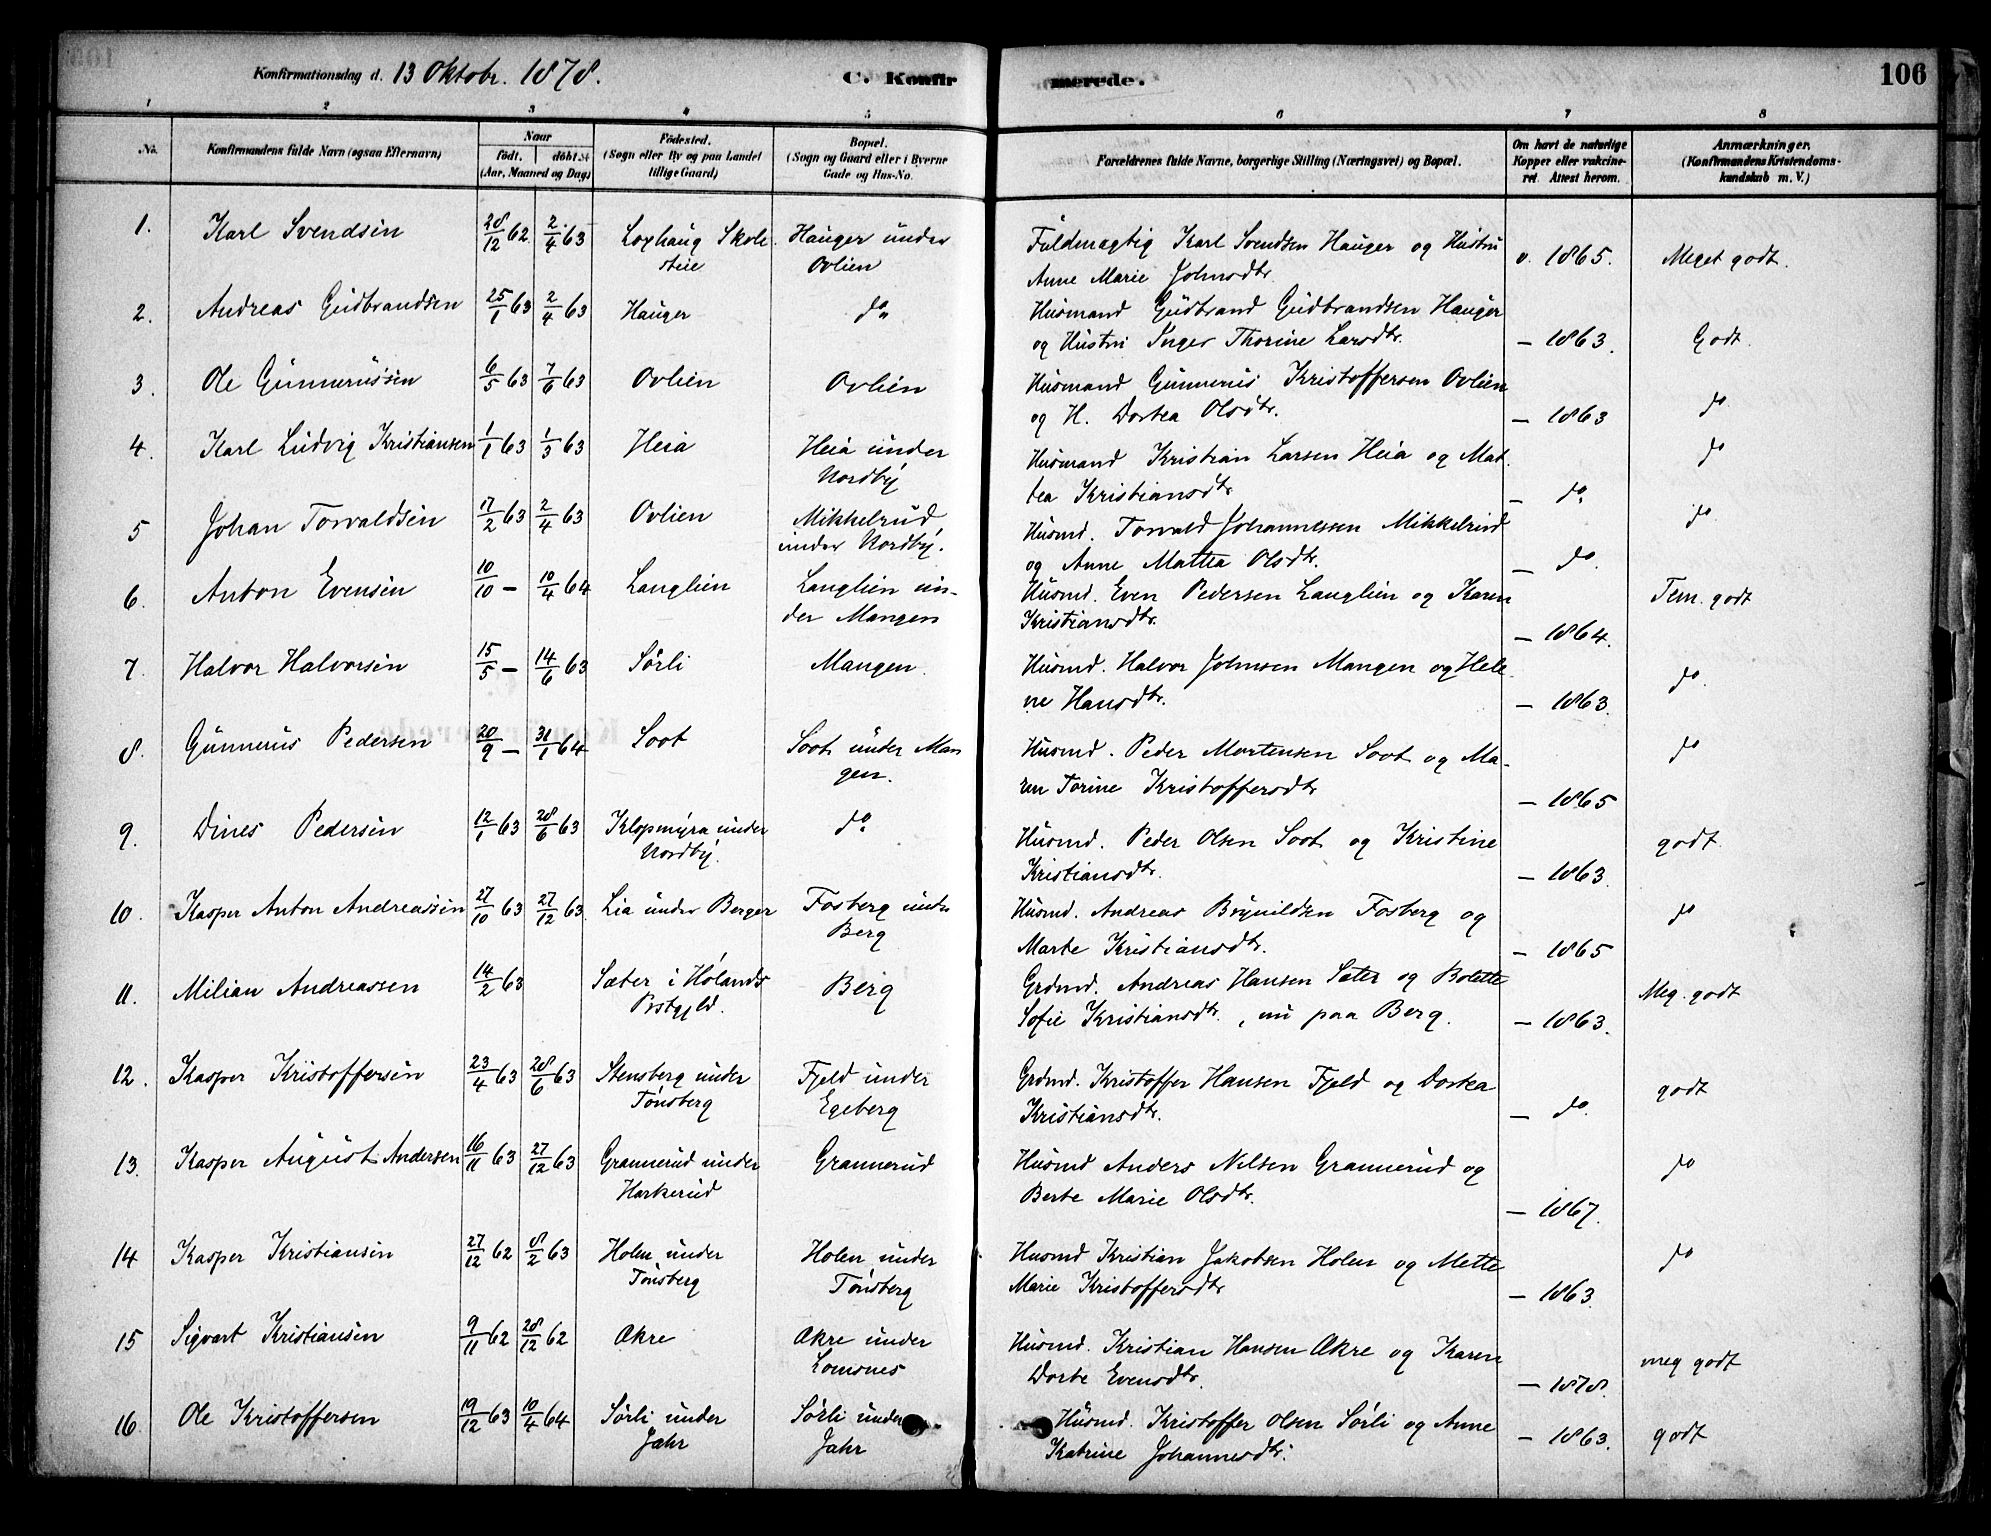 Konfirmationsdag d. 13 Oktobr. 1878. C. Konfirmerede. 106
1 2 3 4 5 6 7 8
No. Konfirmandens fulde Navn (ogsaa Efternavn) Naar født. døbt. (Aar, Maaned og Dag) Fødested. (Sogn eller By og paa Landet tillige Gaard) Bopæl. (Sogn og Gaard eller i Byerne Gade og Hus-No. Forældrenes fulde Navne, borgerlige Stilling (Næringsvei) og Bopæl. Om havt de naturlige Kopper eller vakcineret. Attest herom. Anmærkninger. (Konfirmandens Kristendomskundskab m. V.)
1. Karl Svendsen 28/12 62 2/4 63 Loghaug Skole Hauger under Fuldmægtig Karl Svendsen Hauger og Hustru
steie Ovlien Anne Marie Johnsdtr. v. 1865. Meget godt.
2. Andreas Gudbrandsen 25/1 63 2/4 63 Hauger do Husmand Gudbrand Gudbrandsen Hauger
og Hustru Inger Thorine Larsdtr. — 1863. Godt.
3. Ole Gunnerussen 6/5 63 7/6 63 Ovlien Ovlien Husmand Gunnerus Kristoffersen Ovlien
og H. Dortea Olsdtr. — 1863 do
4. Karl Ludvig Kristiansen 1/1 63 1/3 63 Heia Heia under Husmand Kristian Larsen Heia og Mat-
Nordby tea Kristiansdtr — do. do
5 Johan Torvaldsen 17/2 63 2/4 63 Ovlien Mikkelrud Husmd. Torvald Johannessen Mikkelrud
under Nordby. og Anne Mattea Olsdtr. — do. do
6. Anton Evensen 10/10 — 10/4 64 Langlien Langlien un- Husmd. Even Pedersen Langlien og Karen
der Mangen Kristiansdtr. — 1864. Tem. godt
7. Halvor Halvorsen 15/5 — 14/6 63 Sørli Mangen. Husmd. Halvor Johnsen Mangen og Hele-
ne Hansdtr. — 1863. do.
8. Gunnerus Pedersen 20/9 — 31/1 64 Soot Soot under Man Husmd. Peder Mortensen Soot og Ma-
gen. ren Torine Kristoffersdtr — 1865 do
9. Dines Pedersen 12/1 63 28/6 63 Klopmyra under do. Husmd. Peder Olsen Soot og Kristine
Nordby. Kristiansdtr. — 1863. godt
10. Kasper Anton Andreassen 27/10 63 27/12 63. Lia under Berger Fosberg under Husmd. Andreas Brynildsen Fosberg og
Berg Marte Kristiansdtr. — 1865 do
11. Milian Andreassen 14/2 63 Sæter i Hølands Berg Grdmd. Andreas Hansen Sæter og Bolette
Prstgjld. Sofie Kristiansdtr., nu paa Berg. — 1863. Meg. godt
12. Kasper Kristoffersen 23/4 63 28/6 63 Stensberg under Fjeld under Grdmd. Kristoffer Hansen Fjeld og Dortea
Tønsberg Egeberg Kristiansdtr. — do. godt
13. Kasper August Andersen 16/11 63 27/12 63 Grannerud under Grannerud Husmd Anders Nilsen Grannerud og
Harkerud Berte Marie Olsdtr. — 1867. do
14 Kasper Kristiansen 27/12 62 8/2 63 Holen under Holen under Husmd Kristian Jakobsen Holen og Mette
Tønsberg Tønsberg Marie Kristoffersdtr — 1863. do
15 Sigvart Kristiansen 9/11 62 28/12 62 Akre Akre under Husmd. Kristian Hansen Akre og Karen
Lomsnes Dorte Evensdtr. — 1878. meg godt
16. Ole Kristoffersen 19/12 63 10/4 64 Sørli under Sørli under Husmd. Kristoffer Olsen Sørli og Anne
Jahr Jahr Katrine Johannesdtr. — 1863. godt